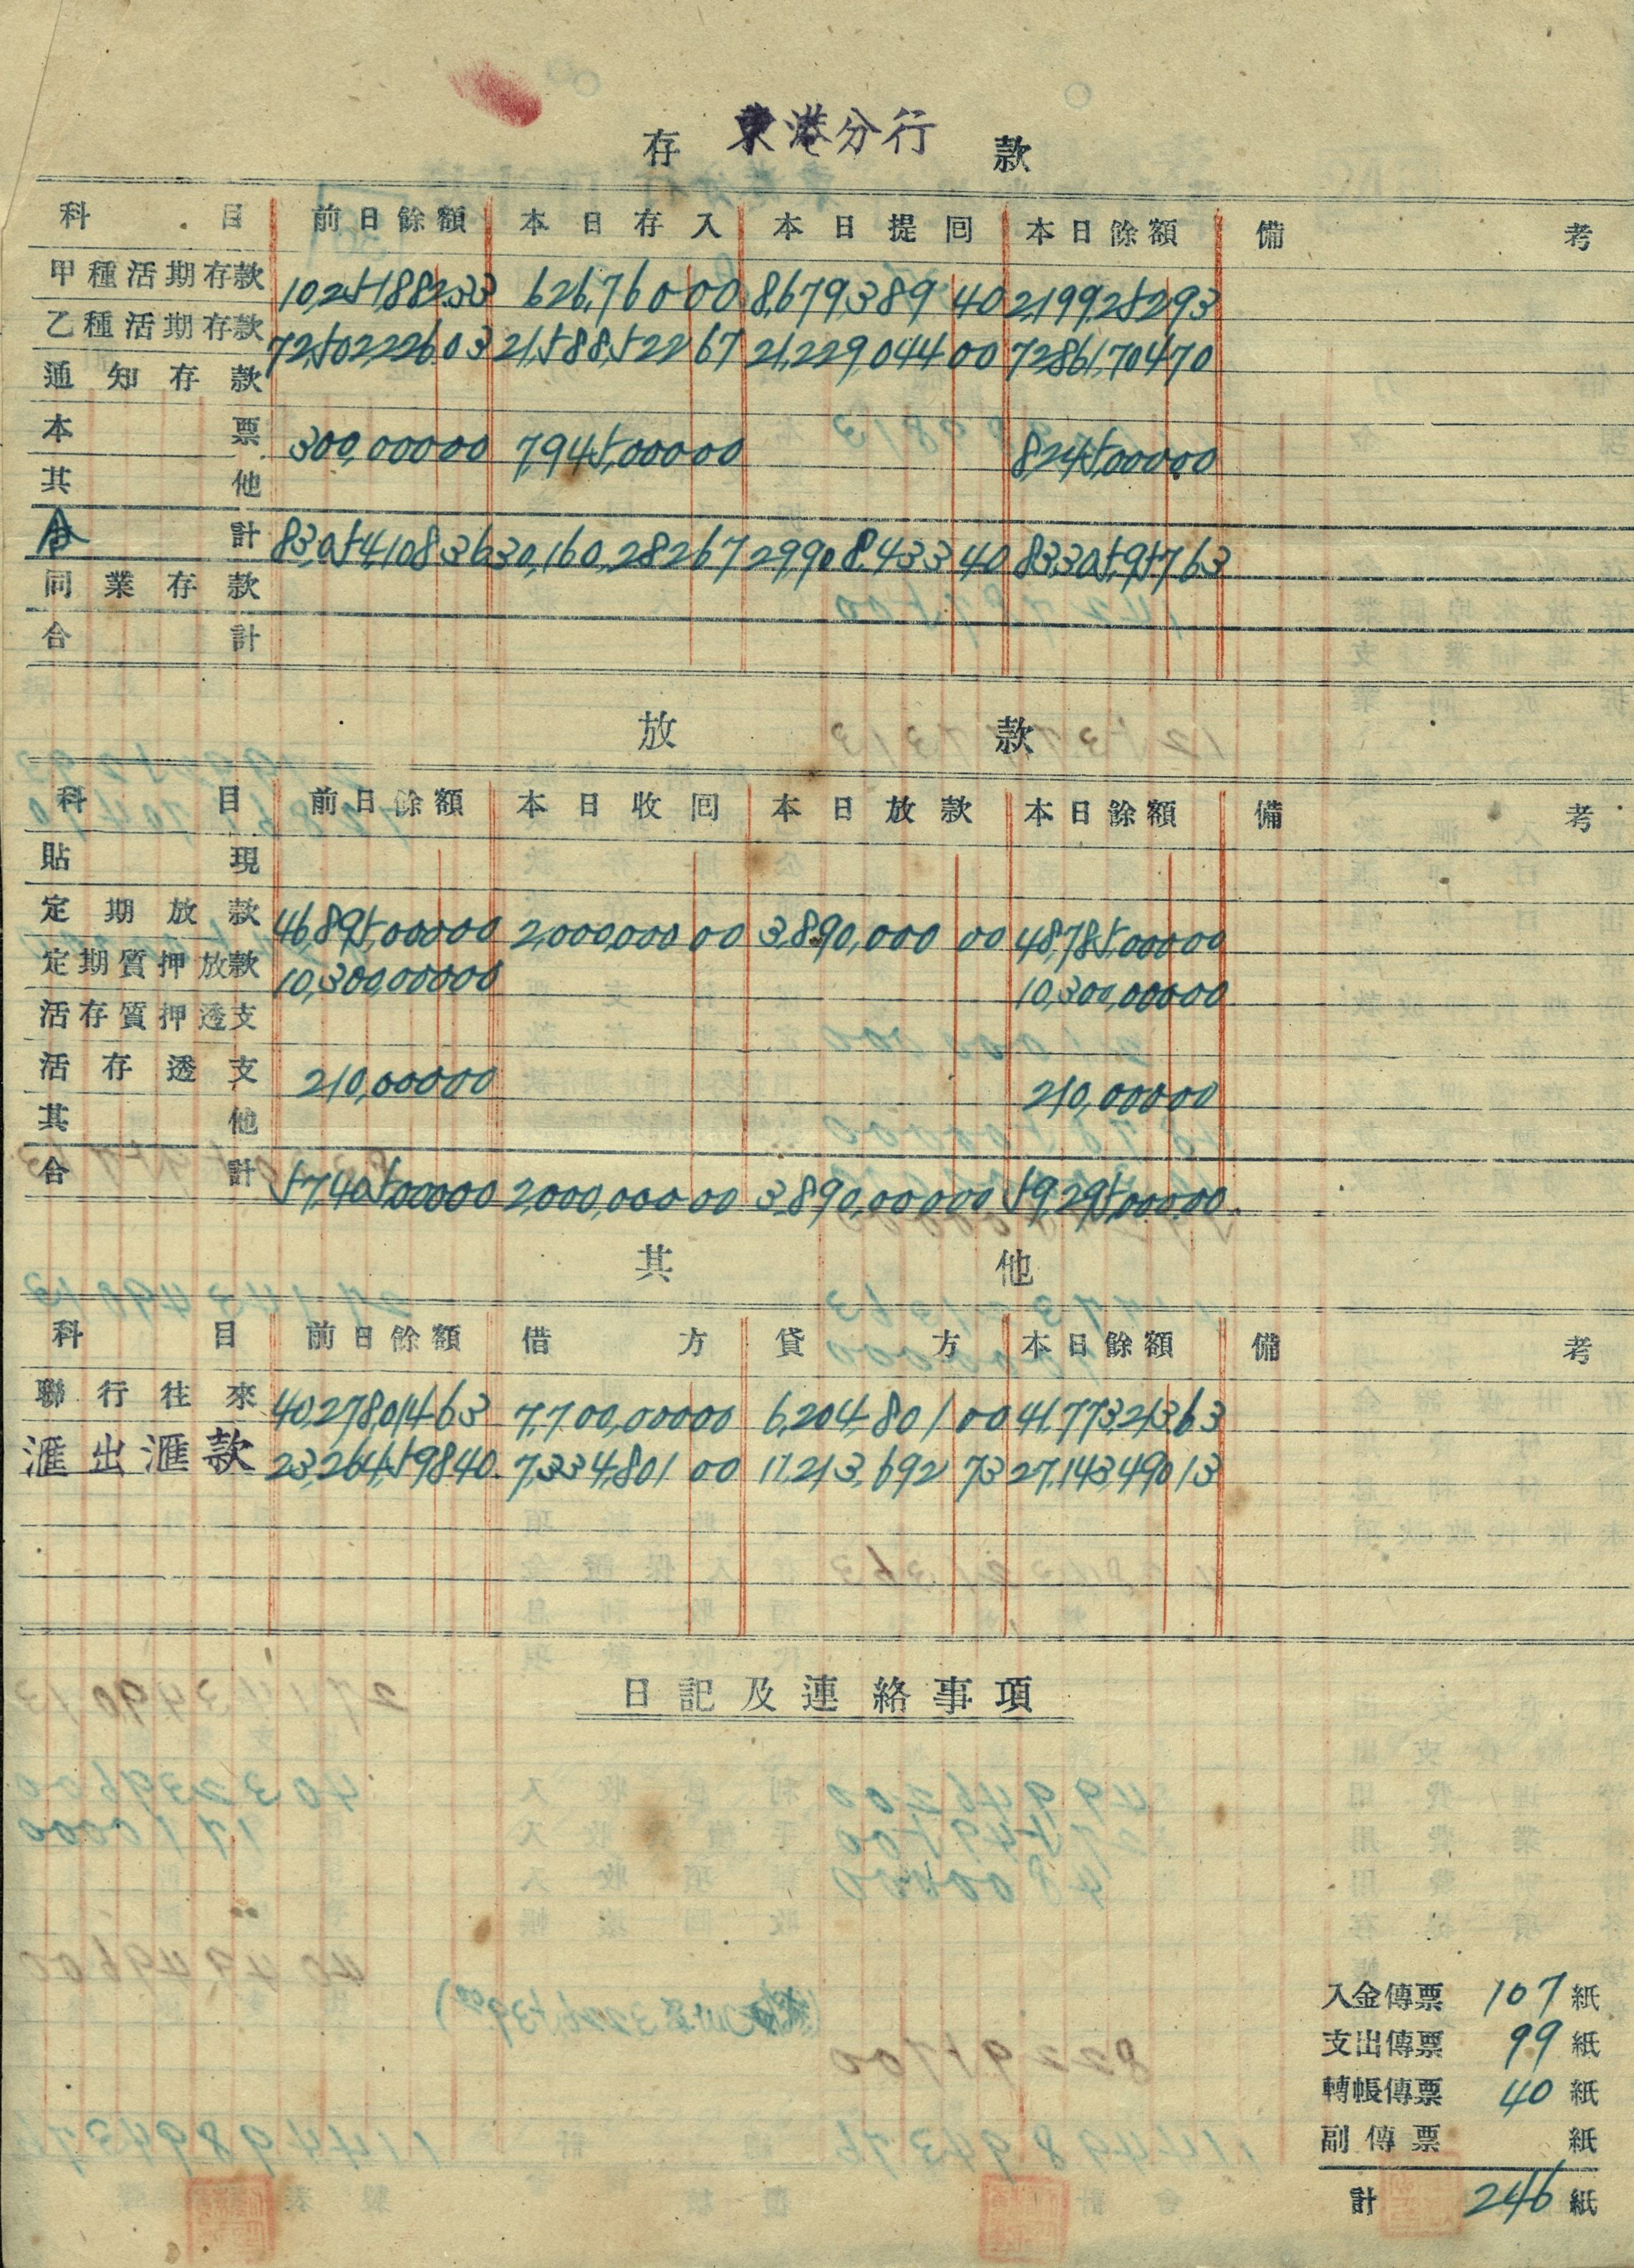 存 東港分行 款
科目 前日餘額 本日存入 本日提回 本日餘額 備考
甲種活期存款 10,251,882 33 626,760 00 8,679,389 40 2,199,252 93
乙種活期存款 72,502,226 03 21,588,522 67 21,229,044 00 72,861,704 70
通知存款
本票 300,000 00 7,945,000 00 8,245,000 00
其他
合計 83,054,108 36 30,160,282 67 29,908,433 40 83,305,957 63
同業存款
合計
放款
科目 前日餘額 本日收回 本日放款 本日餘額 備考
貼現
定期放款 46,895,000 00 2,000,000 00 3,890,000 00 48,785,000 00
定期質押放款 10,300,000 00 10,300,000 00
活存質押透支
活存透支 210,000 00 210,000 00
其他
合計 57,405,000 00 2,000,000 00 3,890,000 00 59,295,000 00
其他
科目 前日餘額 借方 貸方 本日餘額 備考
聯行往來 40,278,014 63 7,700,000 00 6,204,801 00 41,773,213 63
滙出滙款 23,264,598 40 7,334,801 00 11,213,692 73 27,143,490 13
日記及連絡事項
入金傳票 107 紙
支出傳票 99 紙
轉帳傳票 40 紙
副傳票 紙
計 246 紙